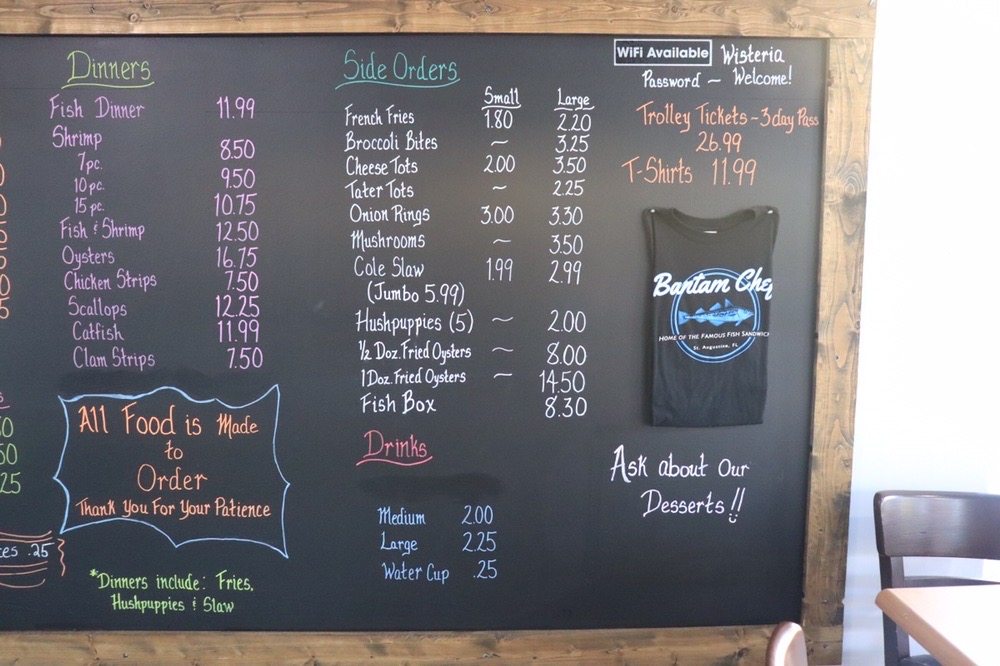 Dinners
Fish Dinner 11.99
Shrimp
7pc. 8.50
10 pc. 9.50
15 pc. 10.75
Fish & Shrimp 12.50
Oysters 16.75
Chicken Strips 7.50
Scallops 12.25
Catfish 11.99
Clam Strips 7.50
All Food is Made
to
Order
Thank You For Your Patience
.25
*Dinners include: Fries,
Hushpuppies & Slaw
Side Orders
Small Large
French Fries 1.80 2.20
Broccoli Bites ~ 3.25
Cheese Tots 2.00 3.50
Tater Tots ~ 2.25
Onion Rings 3.00 3.30
Mushrooms ~ 3.50
Cole Slaw 1.99 2.99
(Jumbo 5.99)
Hushpuppies (5) ~ 2.00
1/2 Doz. Fried Oysters ~ 8.00
1 Doz. Fried Oysters ~ 14.50
Fish Box 8.30
Drinks
Medium 2.00
Large 2.25
Water Cup .25
WiFi Available Wisteria
Password ~ Welcome!
Trolley Tickets ~ 3 day Pass
26.99
T-Shirts 11.99
Bantam Chef
Home of the Famous Fish Sandwich
St. Augustine, FL
Ask about Our
Desserts!!